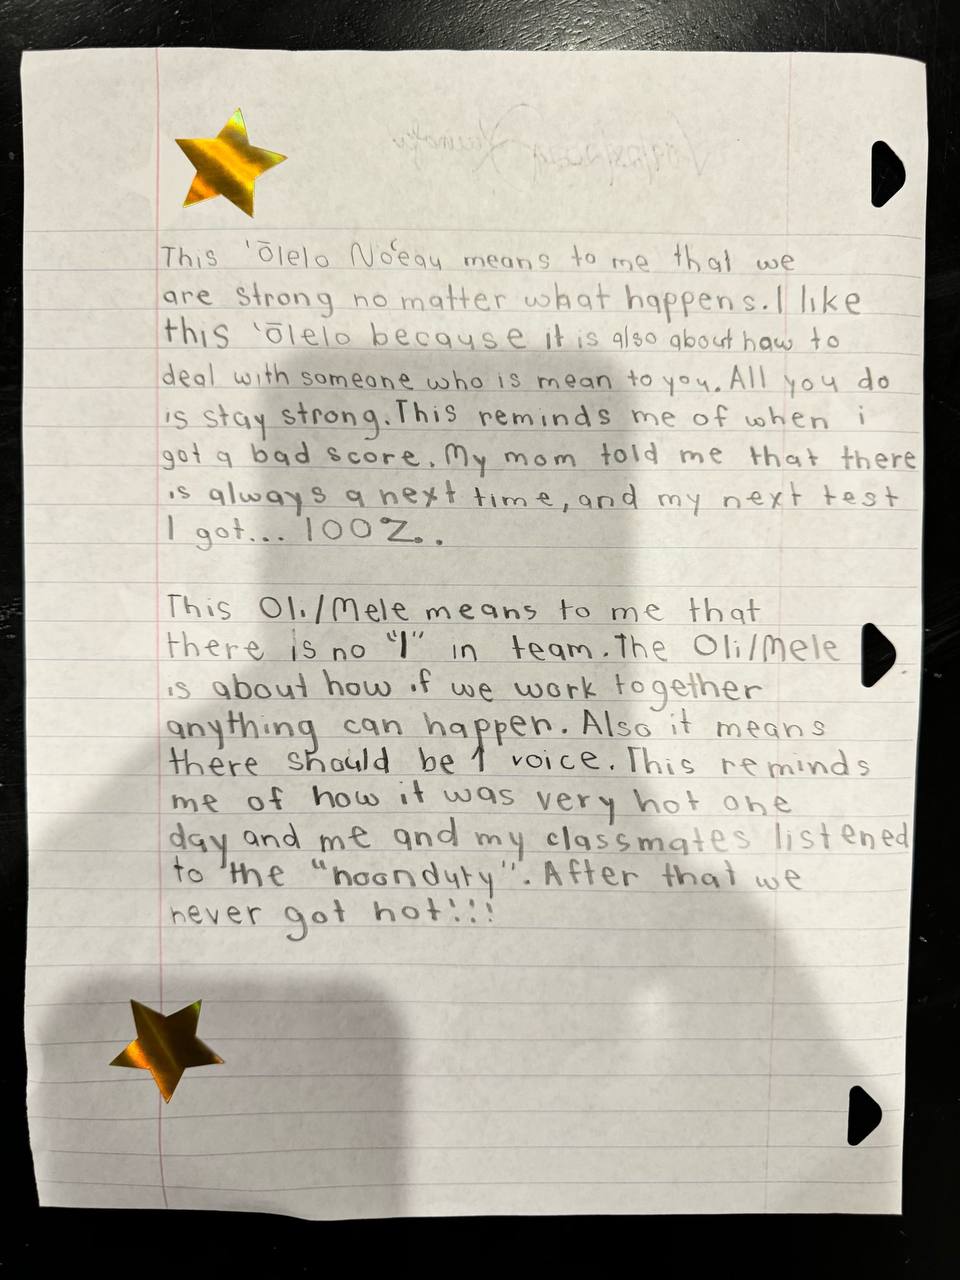 This 'Ōlelo No'eau means to me that we
are strong no matter what happens. I like
this 'ōlelo because it is also about haw to
deal with someone who is mean to you. All you do
is stay strong. This reminds me of when i
got a bad score. My mom told me that there
is always a next time, and my next test
I got... 100%..
This Oli/Mele means to me that
there is no "I" in team. The Oli/Mele
is about how if we work together
anything can happen. Also it means
there should be 1 voice. This reminds
me of how it was very hot one
day and me and my classmates listened
to the "noonduty". After that we
never got hot!!!